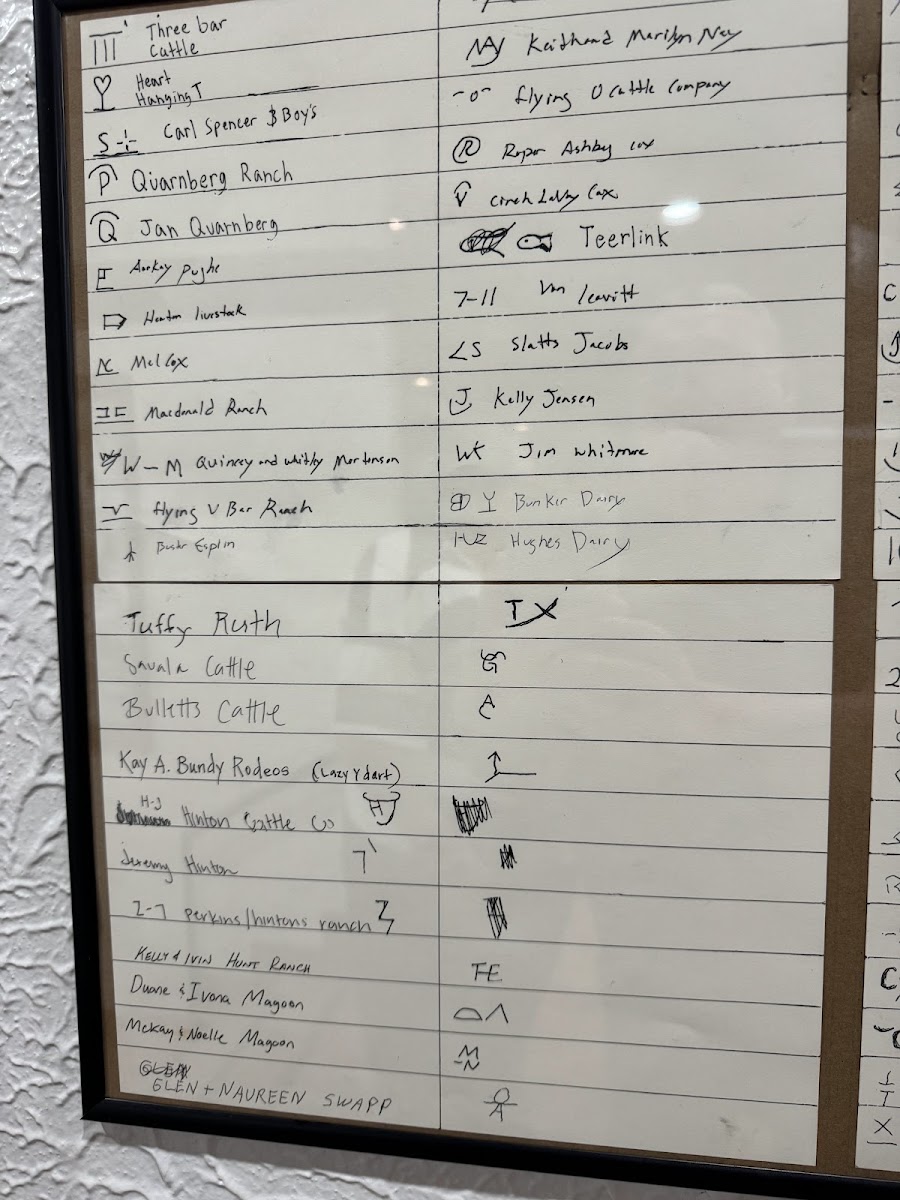 Three bar
Cattle
Heart
Hanging T
S Carl Spencer $ Boy's
P Quarnberg Ranch
Q Jan Quarnberg
E Pughe
livestock
Mel Cox
Macdonald Ranch
W-M Quincey and Whitley Mortenson
flying V Bar Ranch
Esplin
NAY Keith and Marilyn Nay
-O- flying O Cattle Company
R Roper Ashby Cox
Cinch LaVoy Cox
Teerlink
7-11 Van Leavitt
LS Slatts Jacobs
J Kelly Jensen
WK Jim Whitmore
Bunker Dairy
HZ Hughes Dairy
Tuffy Ruth TX
Savala Cattle
Bulletts Cattle
Kay A. Bundy Rodeos (Lazy Y dart)
H-J Hinton Cattle Co H
Jeremy Hinton 7
2-7 perkins/hintons ranch
KELLY & IVIN HUNT RANCH FE
Duane & Ivona Magoon
McKay & Noelle Magoon M N
GLEN + NAUREEN SWAPP A